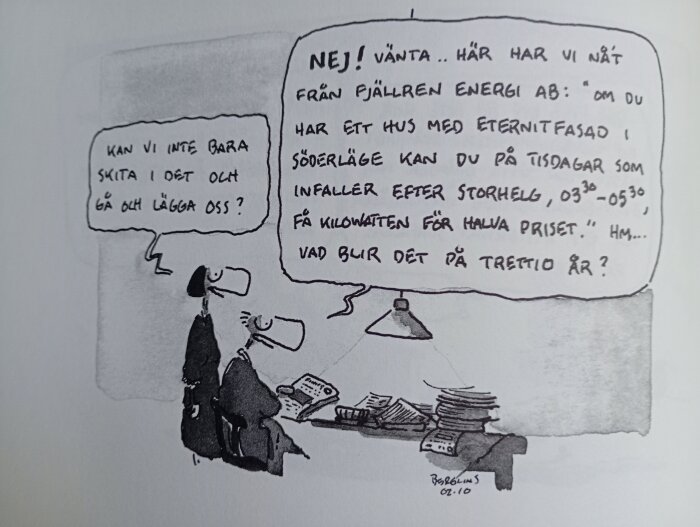 KAN VI INTE BARA
SKITA I DET OCH
GÅ OCH LÄGGA OSS?
NEJ! VÄNTA.. HÄR HAR VI NÅ'T
FRÅN FJÄLLREN ENERGI AB: "OM DU
HAR ETT HUS MED ETERNITFASAD I
SÖDERLÄGE KAN DU PÅ TISDAGAR SOM
INFALLER EFTER STORHELG, 03³⁰-05³⁰,
FÅ KILOWATTEN FÖR HALVA PRISET." HM...
VAD BLIR DET PÅ TRETTIO ÅR?
BERGLINS
02.10